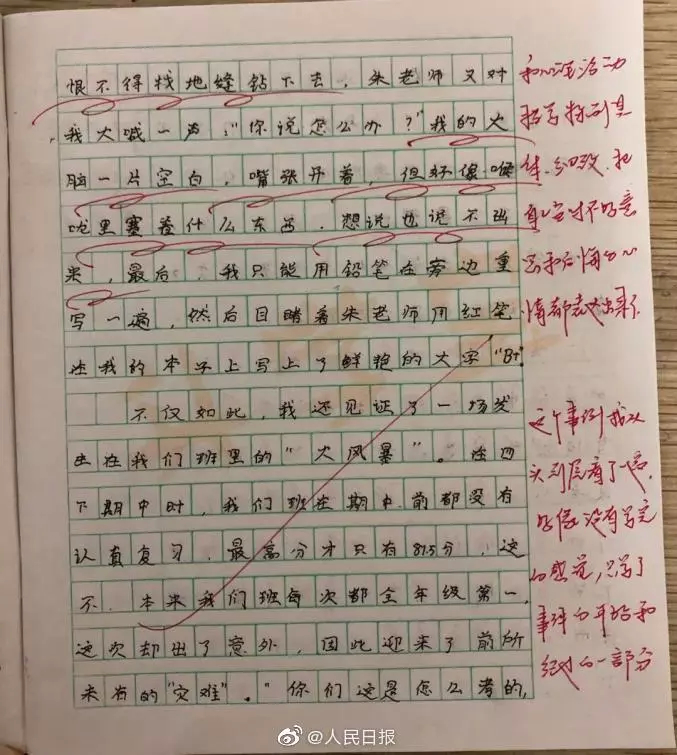 恨不得找地缝钻下去，朱老师又对
我大喊一声："你说怎么办？"我的大
脑一片空白，嘴张开着，但好像喉
咙里塞着什么东西，想说也说不出
来，最后，我只能用铅笔在旁边重
写一遍，然后目睹着朱老师用红笔
在我的本子上写上了鲜艳的大字"B+"。
不仅如此，我还见证了一场发
生在我们班里的"大风暴"。在四
下期中时，我们班在期中前都没有
认真复习，最高分才只有87.5分，这
不，本来我们班每次都全年级第一，
这次却出了意外，因此迎来了前所
未有的"灾难"。"你们这是怎么考的，
和心理活动
描写特别具
体、细致，把
自己当时不好意
思和后悔的心
情都表达出来了
这个事例我从
头到尾看了一遍，
好像没有写完
的感觉，只写了
事件的开始和
经过的一部分
@人民日报